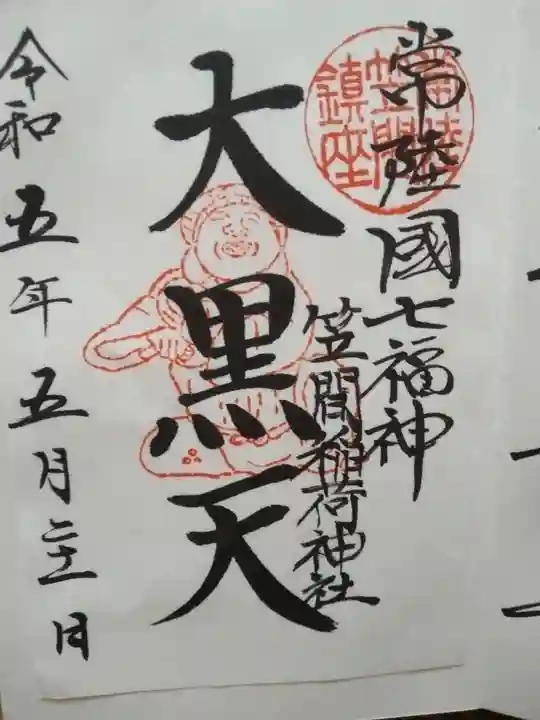 常陸國七福神
常陸
笠間
鎮座
笠間稲荷神社
大黒天
令和五年五月二十一日